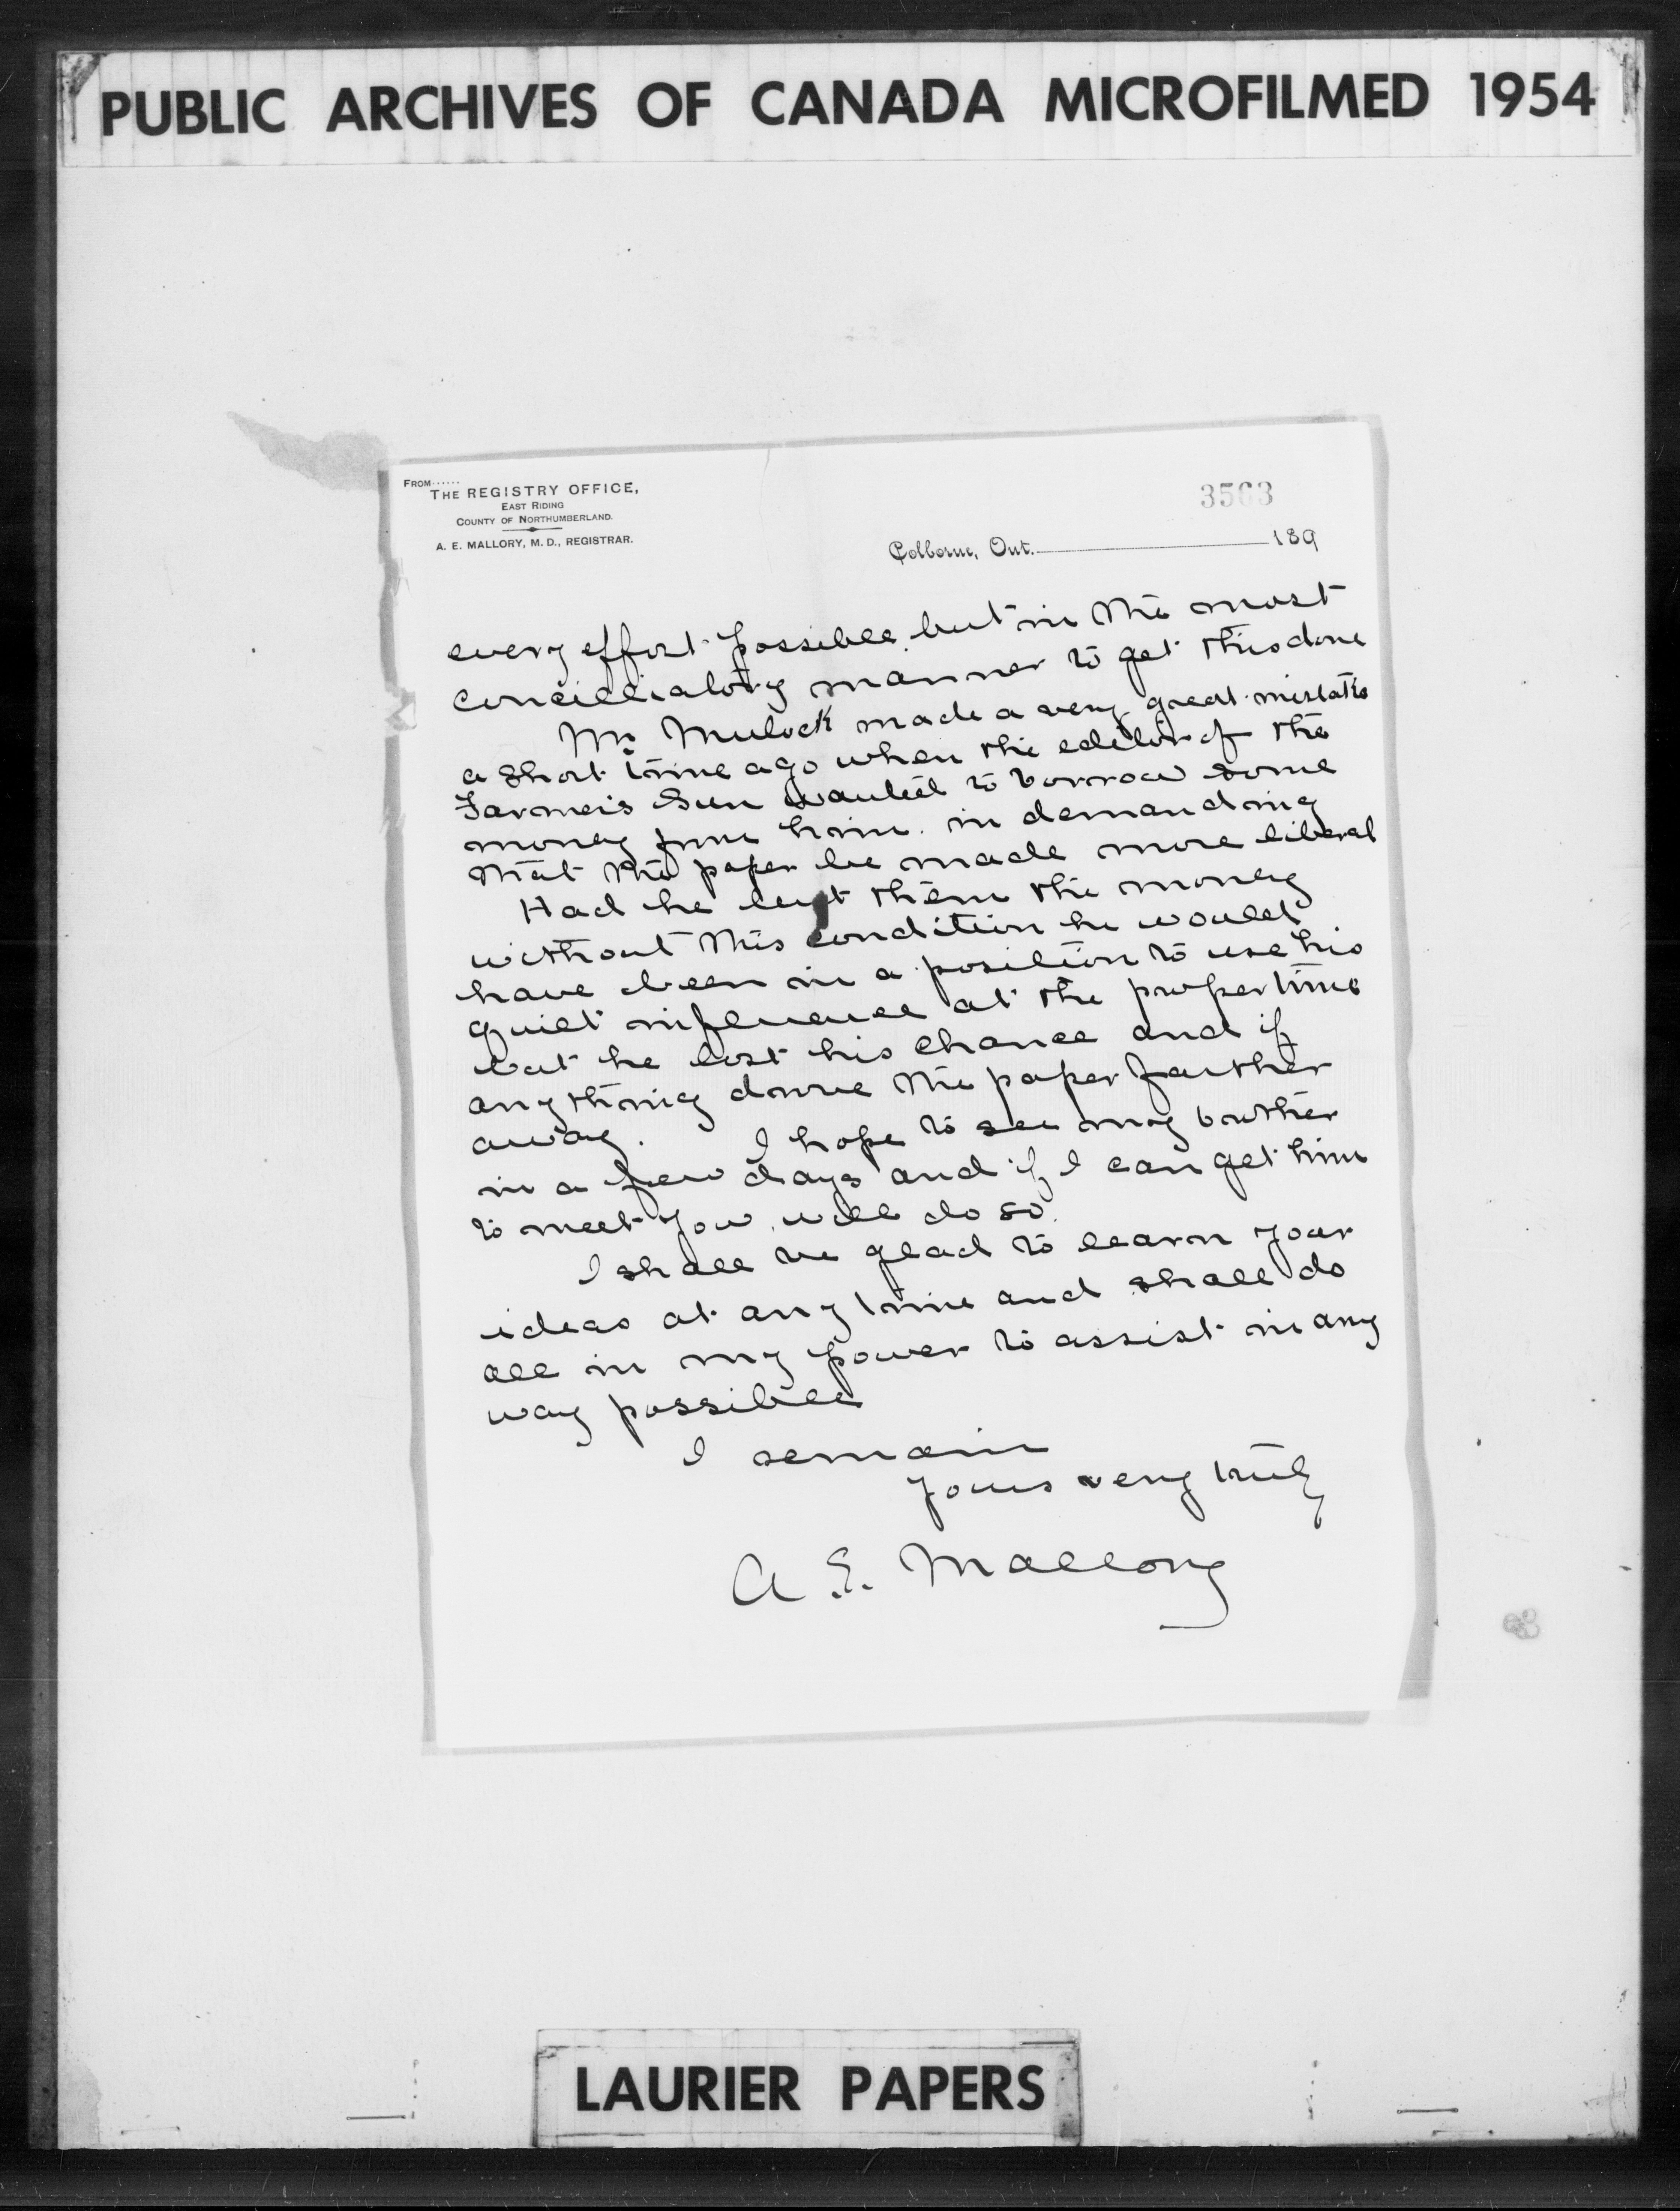 PUBLIC ARCHIVES OF CANADA MICROFILMED 1954
FROM......
THE REGISTRY OFFICE,
EAST RIDING
COUNTY OF NORTHUMBERLAND.
A. E. MALLORY, M. D., REGISTRAR.
3563
Colborne, Ont. 189
every effort possible but in the most
concilliatory manner to get this done
Mr Mulock made a very great mistake
a short time ago when the editor of the
Farmer's Sun wanted to borrow some
money from him in demanding
that the paper be made more liberal
Had he lent them the money
without this condition he would
have been in a position to use his
quiet influence at the proper time
but he lost his chance and if
anything drove the paper farther
away. I hope to see my brother
in a few days and if I can get him
to meet you will do so.
I shall be glad to learn your
ideas at any time and shall do
all in my power to assist in any
way possible
I remain
Yours very truly
A. E. Mallory
LAURIER PAPERS